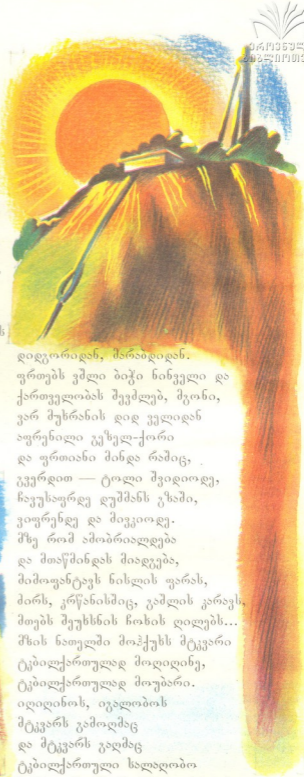 ეროვნული
ბიბლიოთეკა
დიდგორიდან, მარაბდიდან.
ფრთებს ვშლი ბიჭი ნინველი და
ქართველობას შევძლებ, მგონი,
ვარ მუხრანის დიდ ველიდან
აფრენილი გეზელ-ქორი
და ფრთიანი მინდა რაშიც,
გვერდით — ტოლი შვიდიოდე,
ჩავუსაფრდე დუშმანს გზაში,
ვიფრენდე და მივკიოდე.
მზე რომ ამობრიალდება
და მთაწმინდას მიადგება,
მიმოფანტავს ნისლის ფარას,
ძირს, კრწანისშიც, გაშლის კარავს,
მთებს შეუხსნის ჩოხის ღილებს...
მზის ნათელში მოჰქუხს მტკვარი
ტკბილქართულად მოღიღინე,
ტკბილქართულად მოუბარი.
იღიღინოს, იგალობოს
მტკვარს გამოღმაც
და მტკვარს გაღმაც
ტკბილქართული სალაღობო